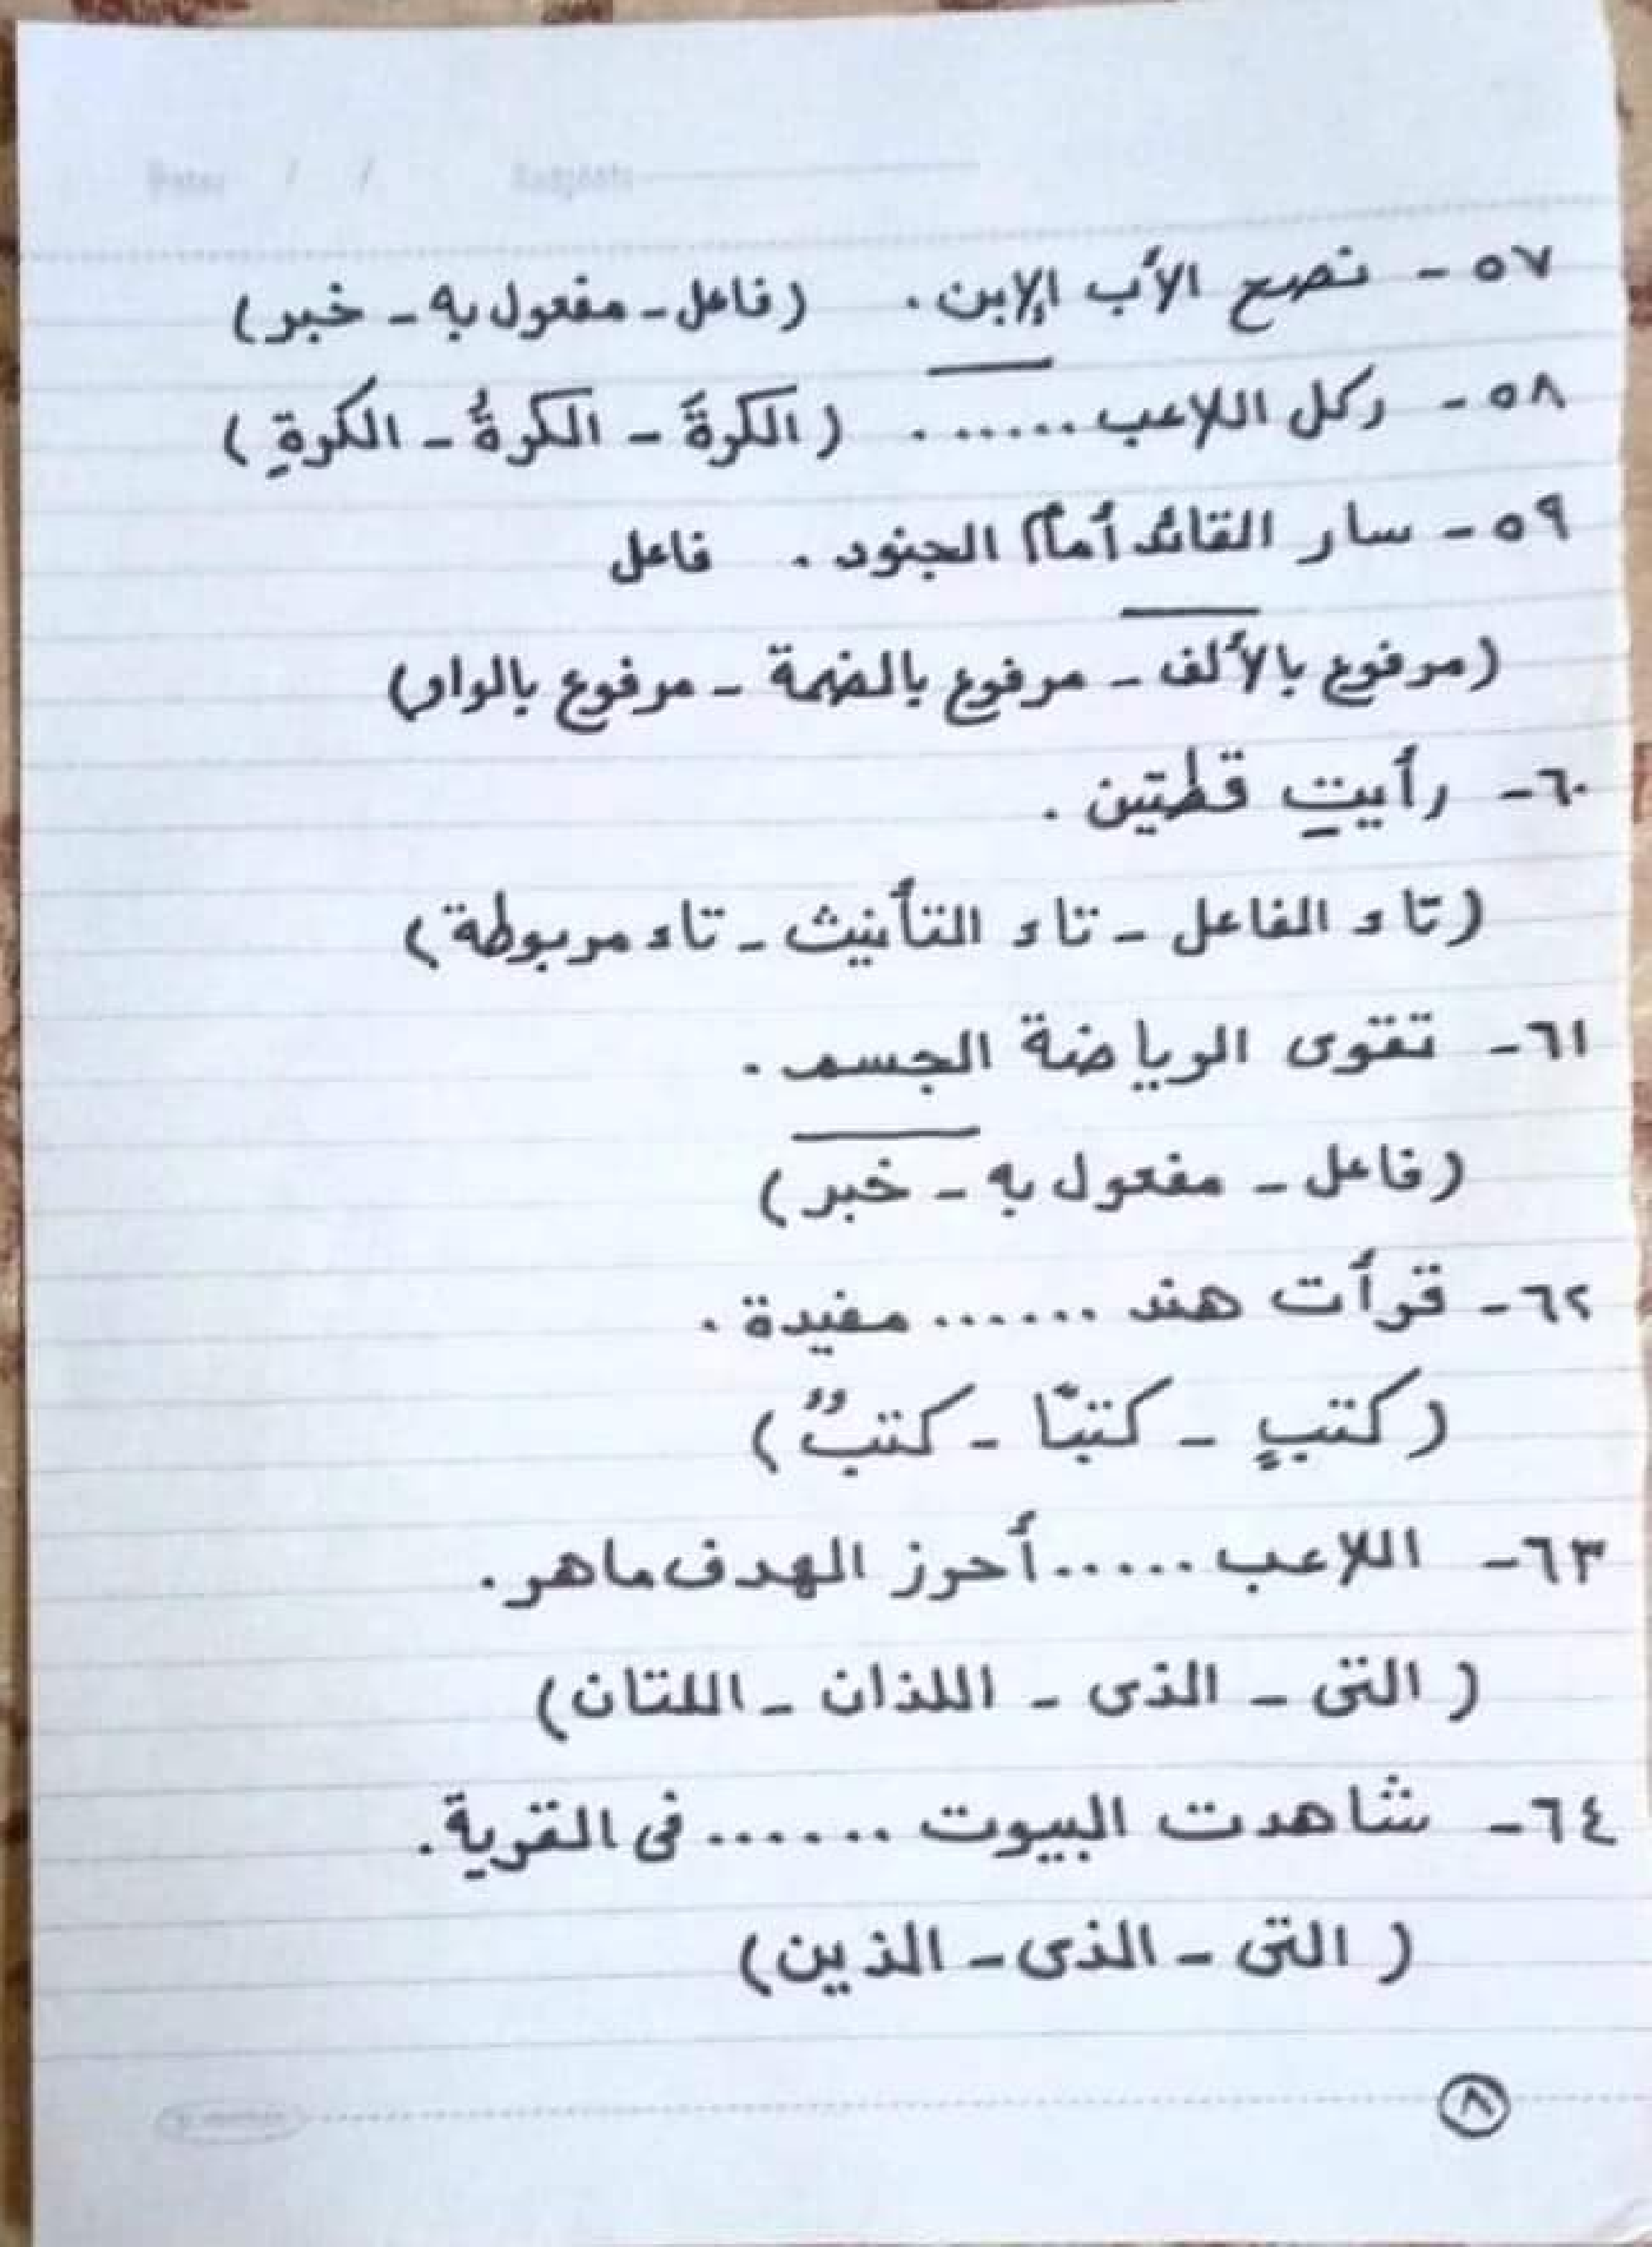 ٥٧ - نصح الأب الإبن . (فاعل - مفعول به - خبر)
٥٨ - ركل اللاعب ...... . (الكرةَ - الكرةُ - الكرةِ)
٥٩ - سار القائد أمام الجنود . فاعل
(مرفوع بالألف - مرفوع بالضمة - مرفوع بالواو)
٦٠ - رأيتِ قطتين .
(تاء الفاعل - تاء التأنيث - تاء مربوطة)
٦١ - تقوى الرياضة الجسم .
(فاعل - مفعول به - خبر)
٦٢ - قرأت هند ...... مفيدة .
(كتبٍ - كتبًا - كتبٌ)
٦٣ - اللاعب ..... أحرز الهدف ماهر .
(التى - الذى - اللذان - اللتان)
٦٤ - شاهدت البيوت ...... فى القرية .
(التى - الذى - الذين)
٨